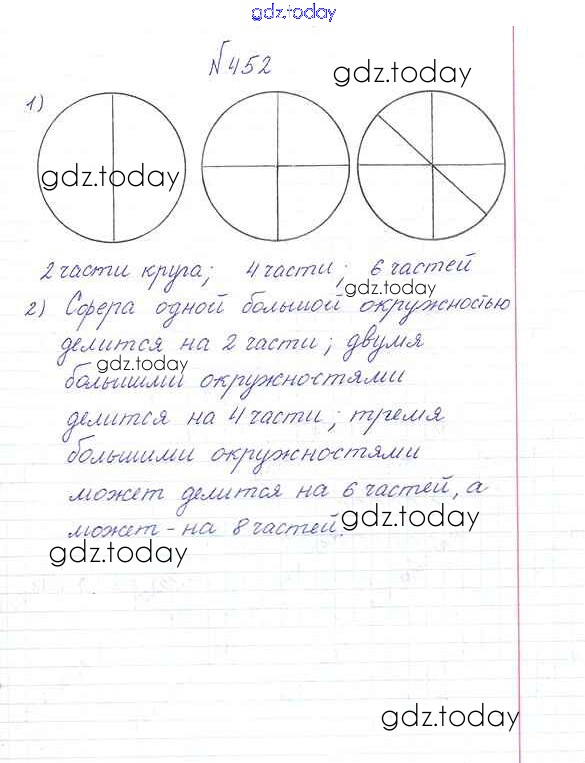 gdz.today
№452
gdz.today
1)
gdz.today
2 части круга; 4 части; 6 частей
gdz.today
2) Сфера одной большой окружностью
делится на 2 части; двумя
gdz.today
большими окружностями
делится на 4 части; тремя
большими окружностями
может делится на 6 частей, а
может - на 8 частей.
gdz.today
gdz.today
gdz.today